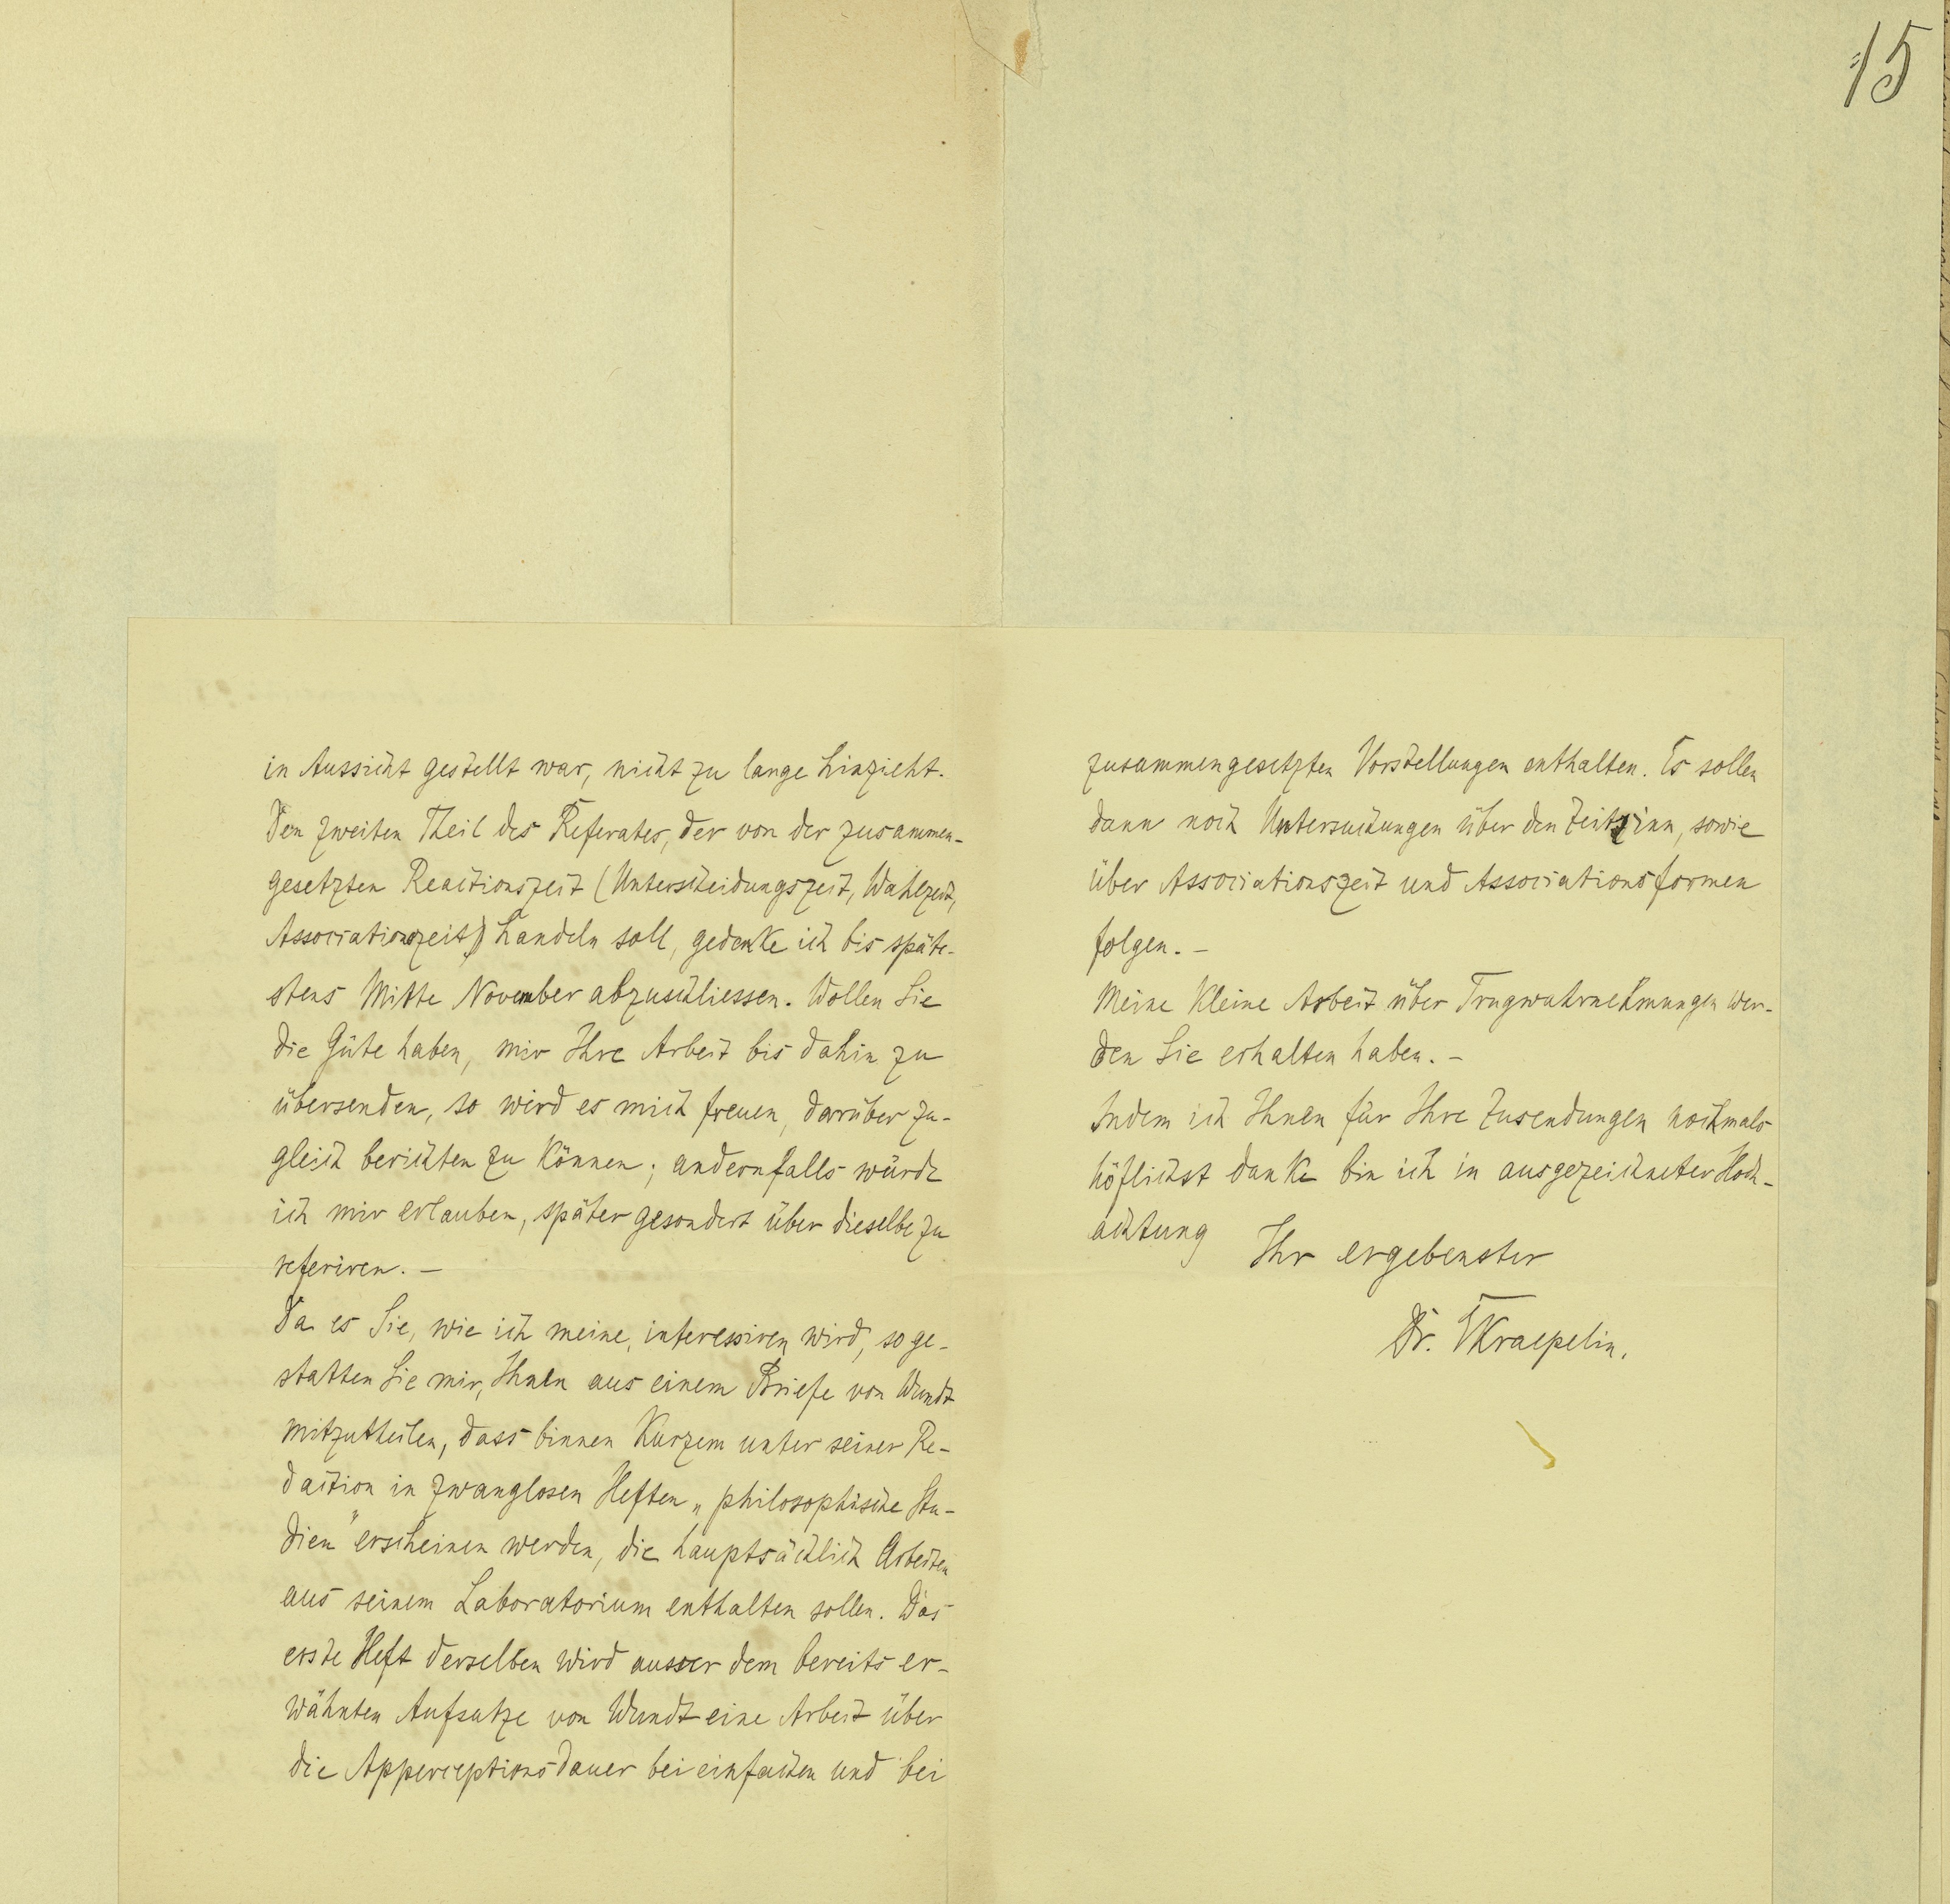 15
in Aussicht gestellt war, nicht zu lange hinzieht.
Den zweiten Theil des Referates, der von der zusammen-
gesetzten Reactionszeit (Unterscheidungszeit, Wahlzeit,
Associationszeit) handeln soll, gedenke ich bis späte-
stens Mitte November abzuschliessen. Wollen Sie
die Güte haben, mir Ihre Arbeit bis dahin zu
übersenden, so wird es mich freuen, darüber zu-
gleich berichten zu können; andernfalls würde
ich mir erlauben, später gesondert über dieselbe zu
referiren. –
Da es Sie, wie ich meine, interessiren wird, so ge-
statten Sie mir, Ihnen aus einem Briefe von Wundt
mitzutheilen, dass binnen Kurzem unter seiner Re-
daction in zwanglosen Heften „philosophische Stu-
dien" erscheinen werden, die hauptsächlich Arbeiten
aus seinem Laboratorium enthalten sollen. Das
erste Heft derselben wird ausser dem bereits er-
wähnten Aufsatze von Wundt eine Arbeit über
die Apperceptionsdauer bei einfachen und bei
zusammengesetzten Vorstellungen enthalten. Es sollen
dann noch Untersuchungen über den Zeitsinn, sowie
über Associationszeit und Associationsformen
folgen. –
Meine kleine Arbeit über Trugwahrnehmungen wer-
den Sie erhalten haben. –
Indem ich Ihnen für Ihre Zusendungen nochmals
höflichst danke bin ich in ausgezeichneter Hoch-
achtung
Ihr ergebenster
Dr. EKraepelin.